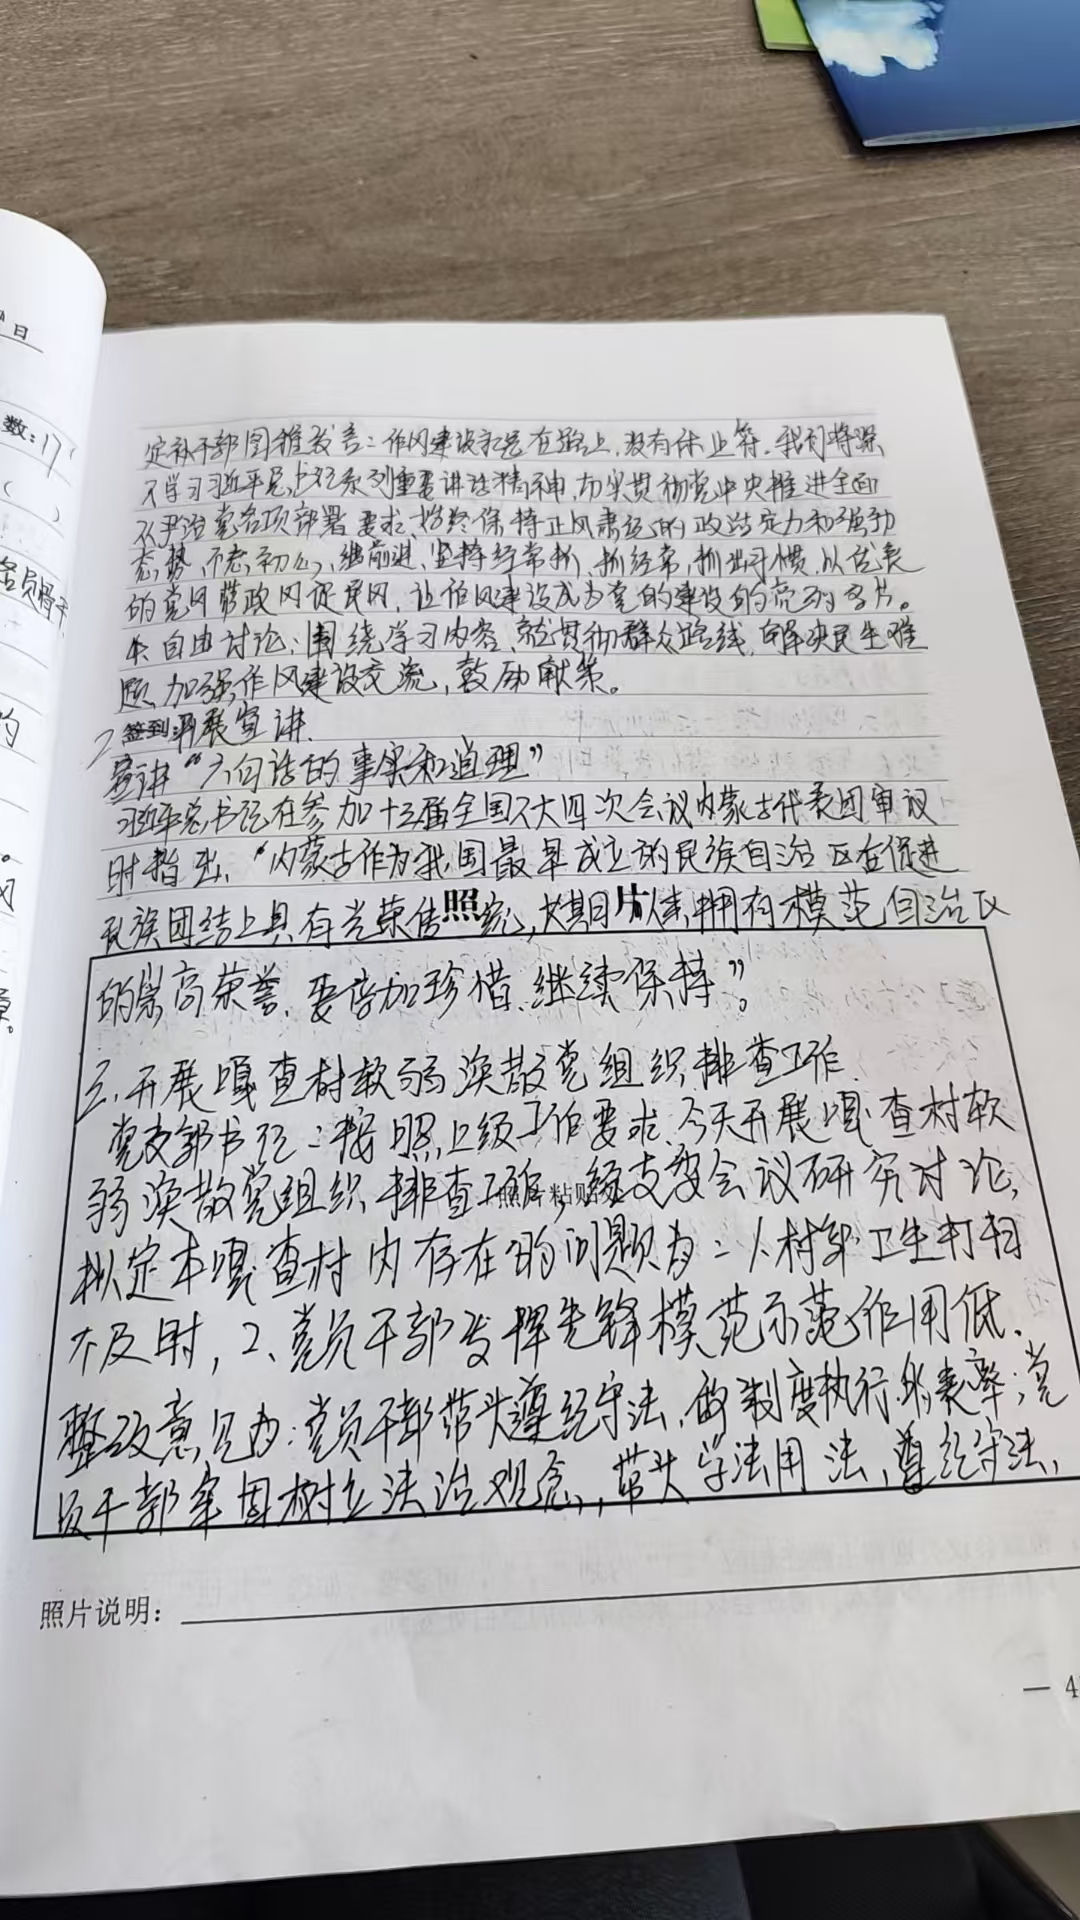 日
数:17
定补干部图雅发言：作风建设永远在路上，没有休止符。我们将深
入学习习近平总书记系列重要讲话精神，切实贯彻党中央推进全面
从严治党各项部署要求，始终保持正风肃纪的政治定力和强劲
态势，不忘初心，继前进，坚持经常抓、抓经常、抓出习惯，以优良
的党风带政风促民风，让作风建设成为党的建设的亮丽名片。
4.自由讨论：围绕学习内容，就贯彻群众路线，解决民生难
题，加强作风建设交流，鼓励献策。
2 签到 开展宣讲
宣讲“六句话的事实和道理”
习近平总书记在参加十三届全国人大四次会议内蒙古代表团审议
时指出，“内蒙古作为我国最早成立的民族自治区在促进
民族团结上具有光荣传统，长期以来拥有模范自治区
照 片
的崇高荣誉，要倍加珍惜、继续保持”。
三、开展嘎查村软弱涣散党组织排查工作
党支部书记：按照上级工作要求，今天开展嘎查村软
弱涣散党组织排查工作，经支委会议研究讨论，
照片粘贴
拟定本嘎查村内存在的问题为：1、村容卫生打扫
不及时，2、党员干部发挥先锋模范示范作用低。
整改意见为：党员干部带头遵纪守法，做制度执行的表率；党
员干部牢固树立法治观念，带头学法用法，遵纪守法，
照片说明：
— 4